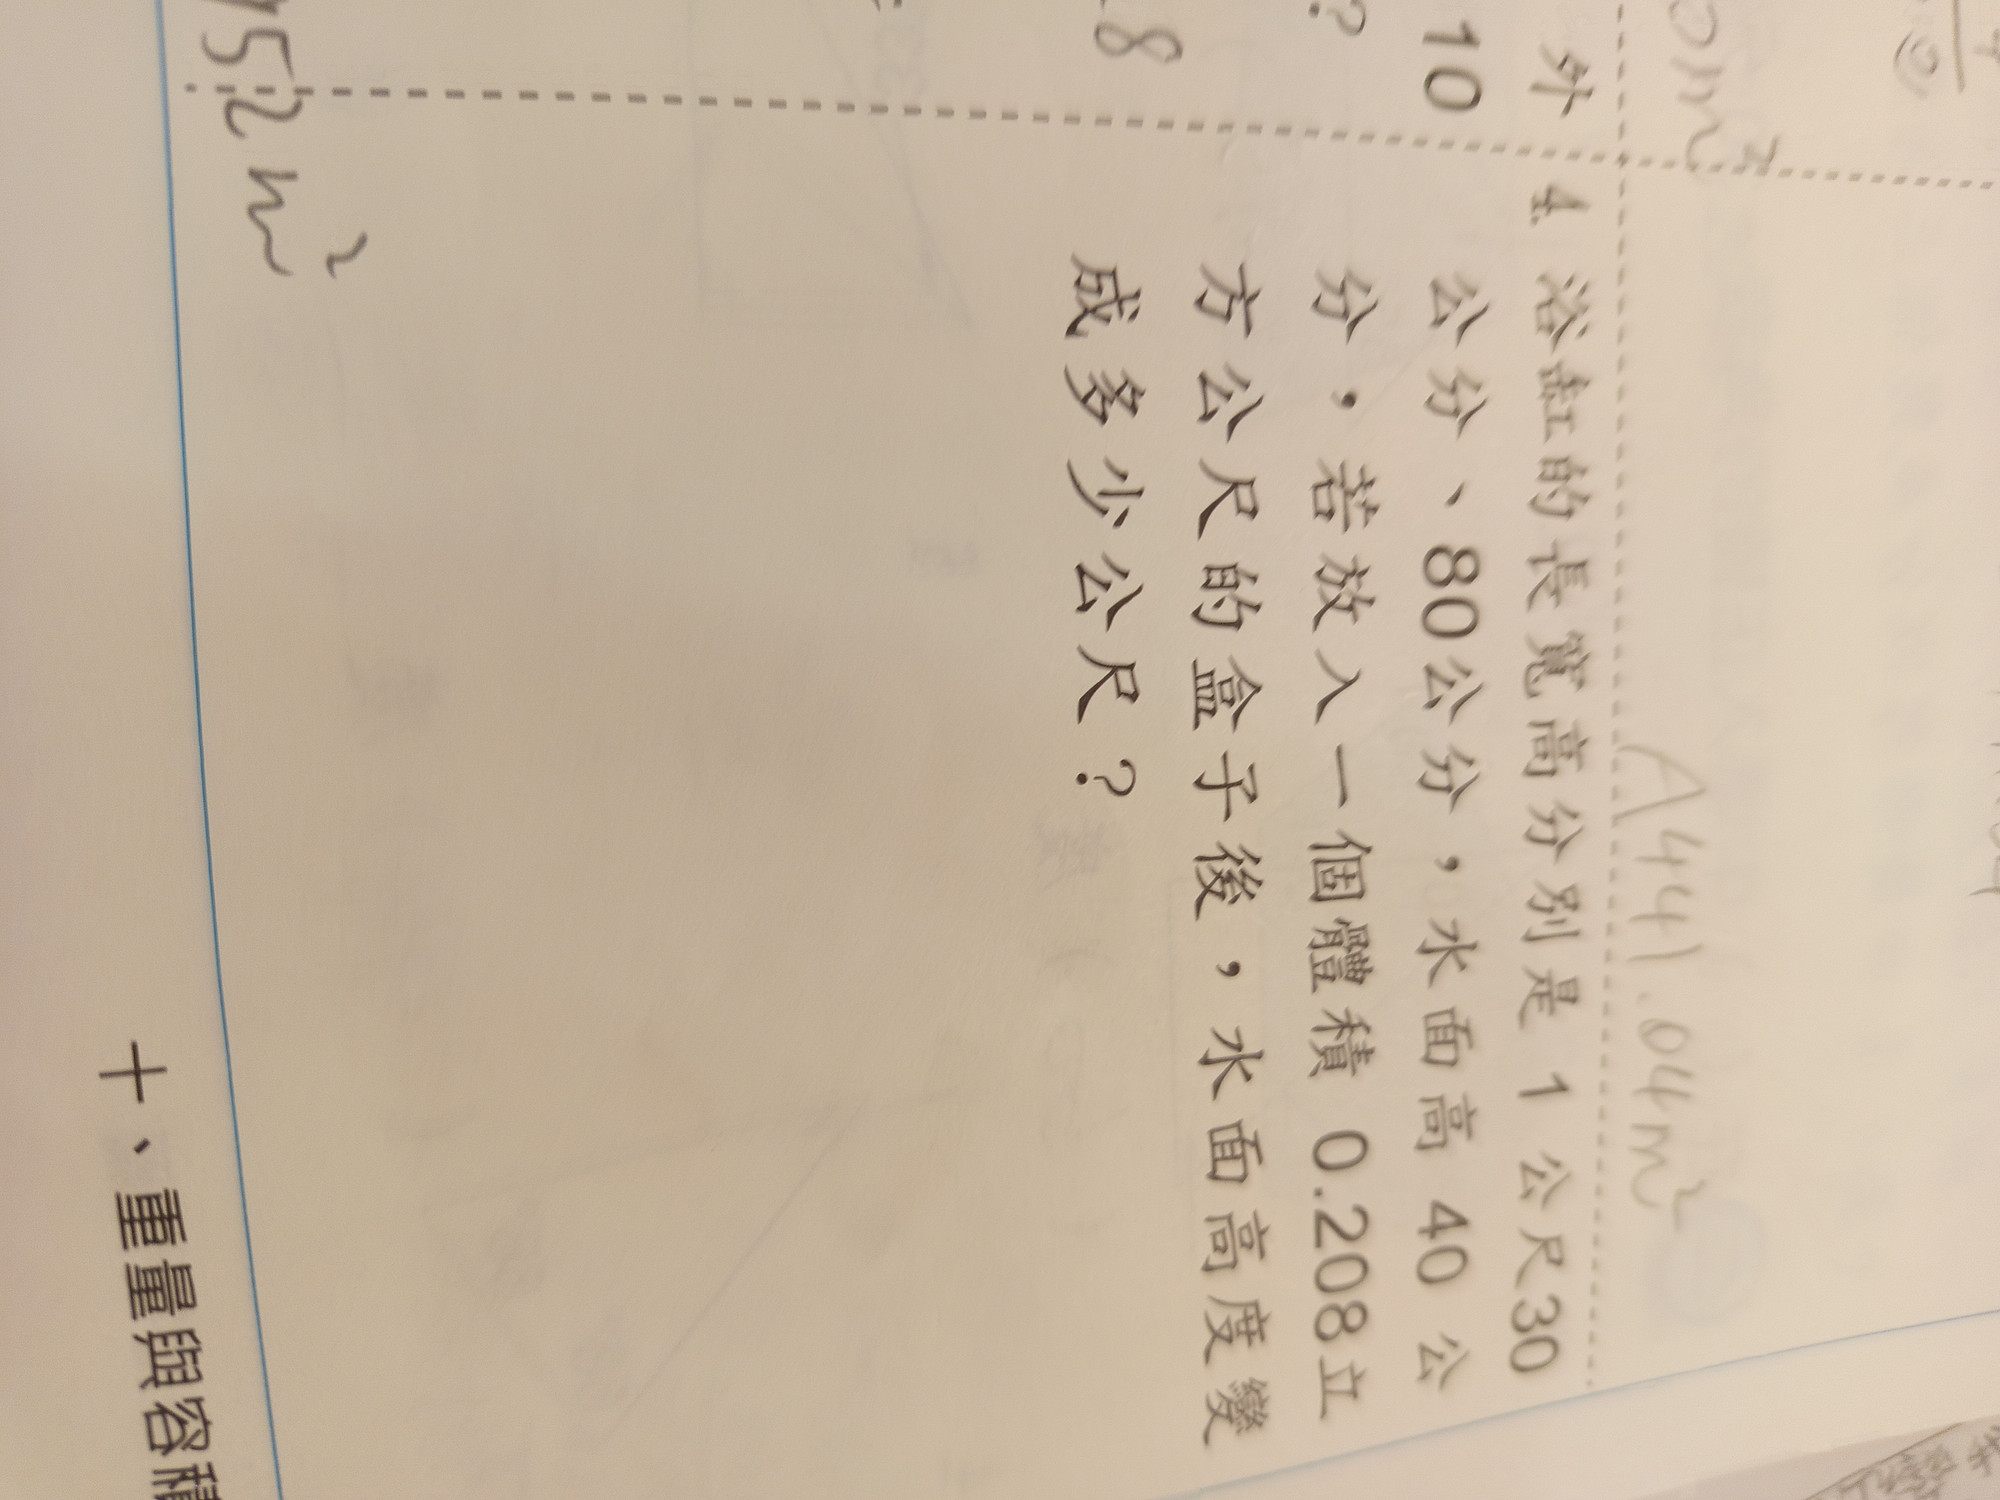 外
10
?
8
152 m²
0m²
A441.04m²
4 浴缸的長寬高分別是 1 公尺30
公分、80公分，水面高 40 公
分，若放入一個體積 0.208立
方公尺的盒子後，水面高度變
成多少公尺？
十、重量與容積